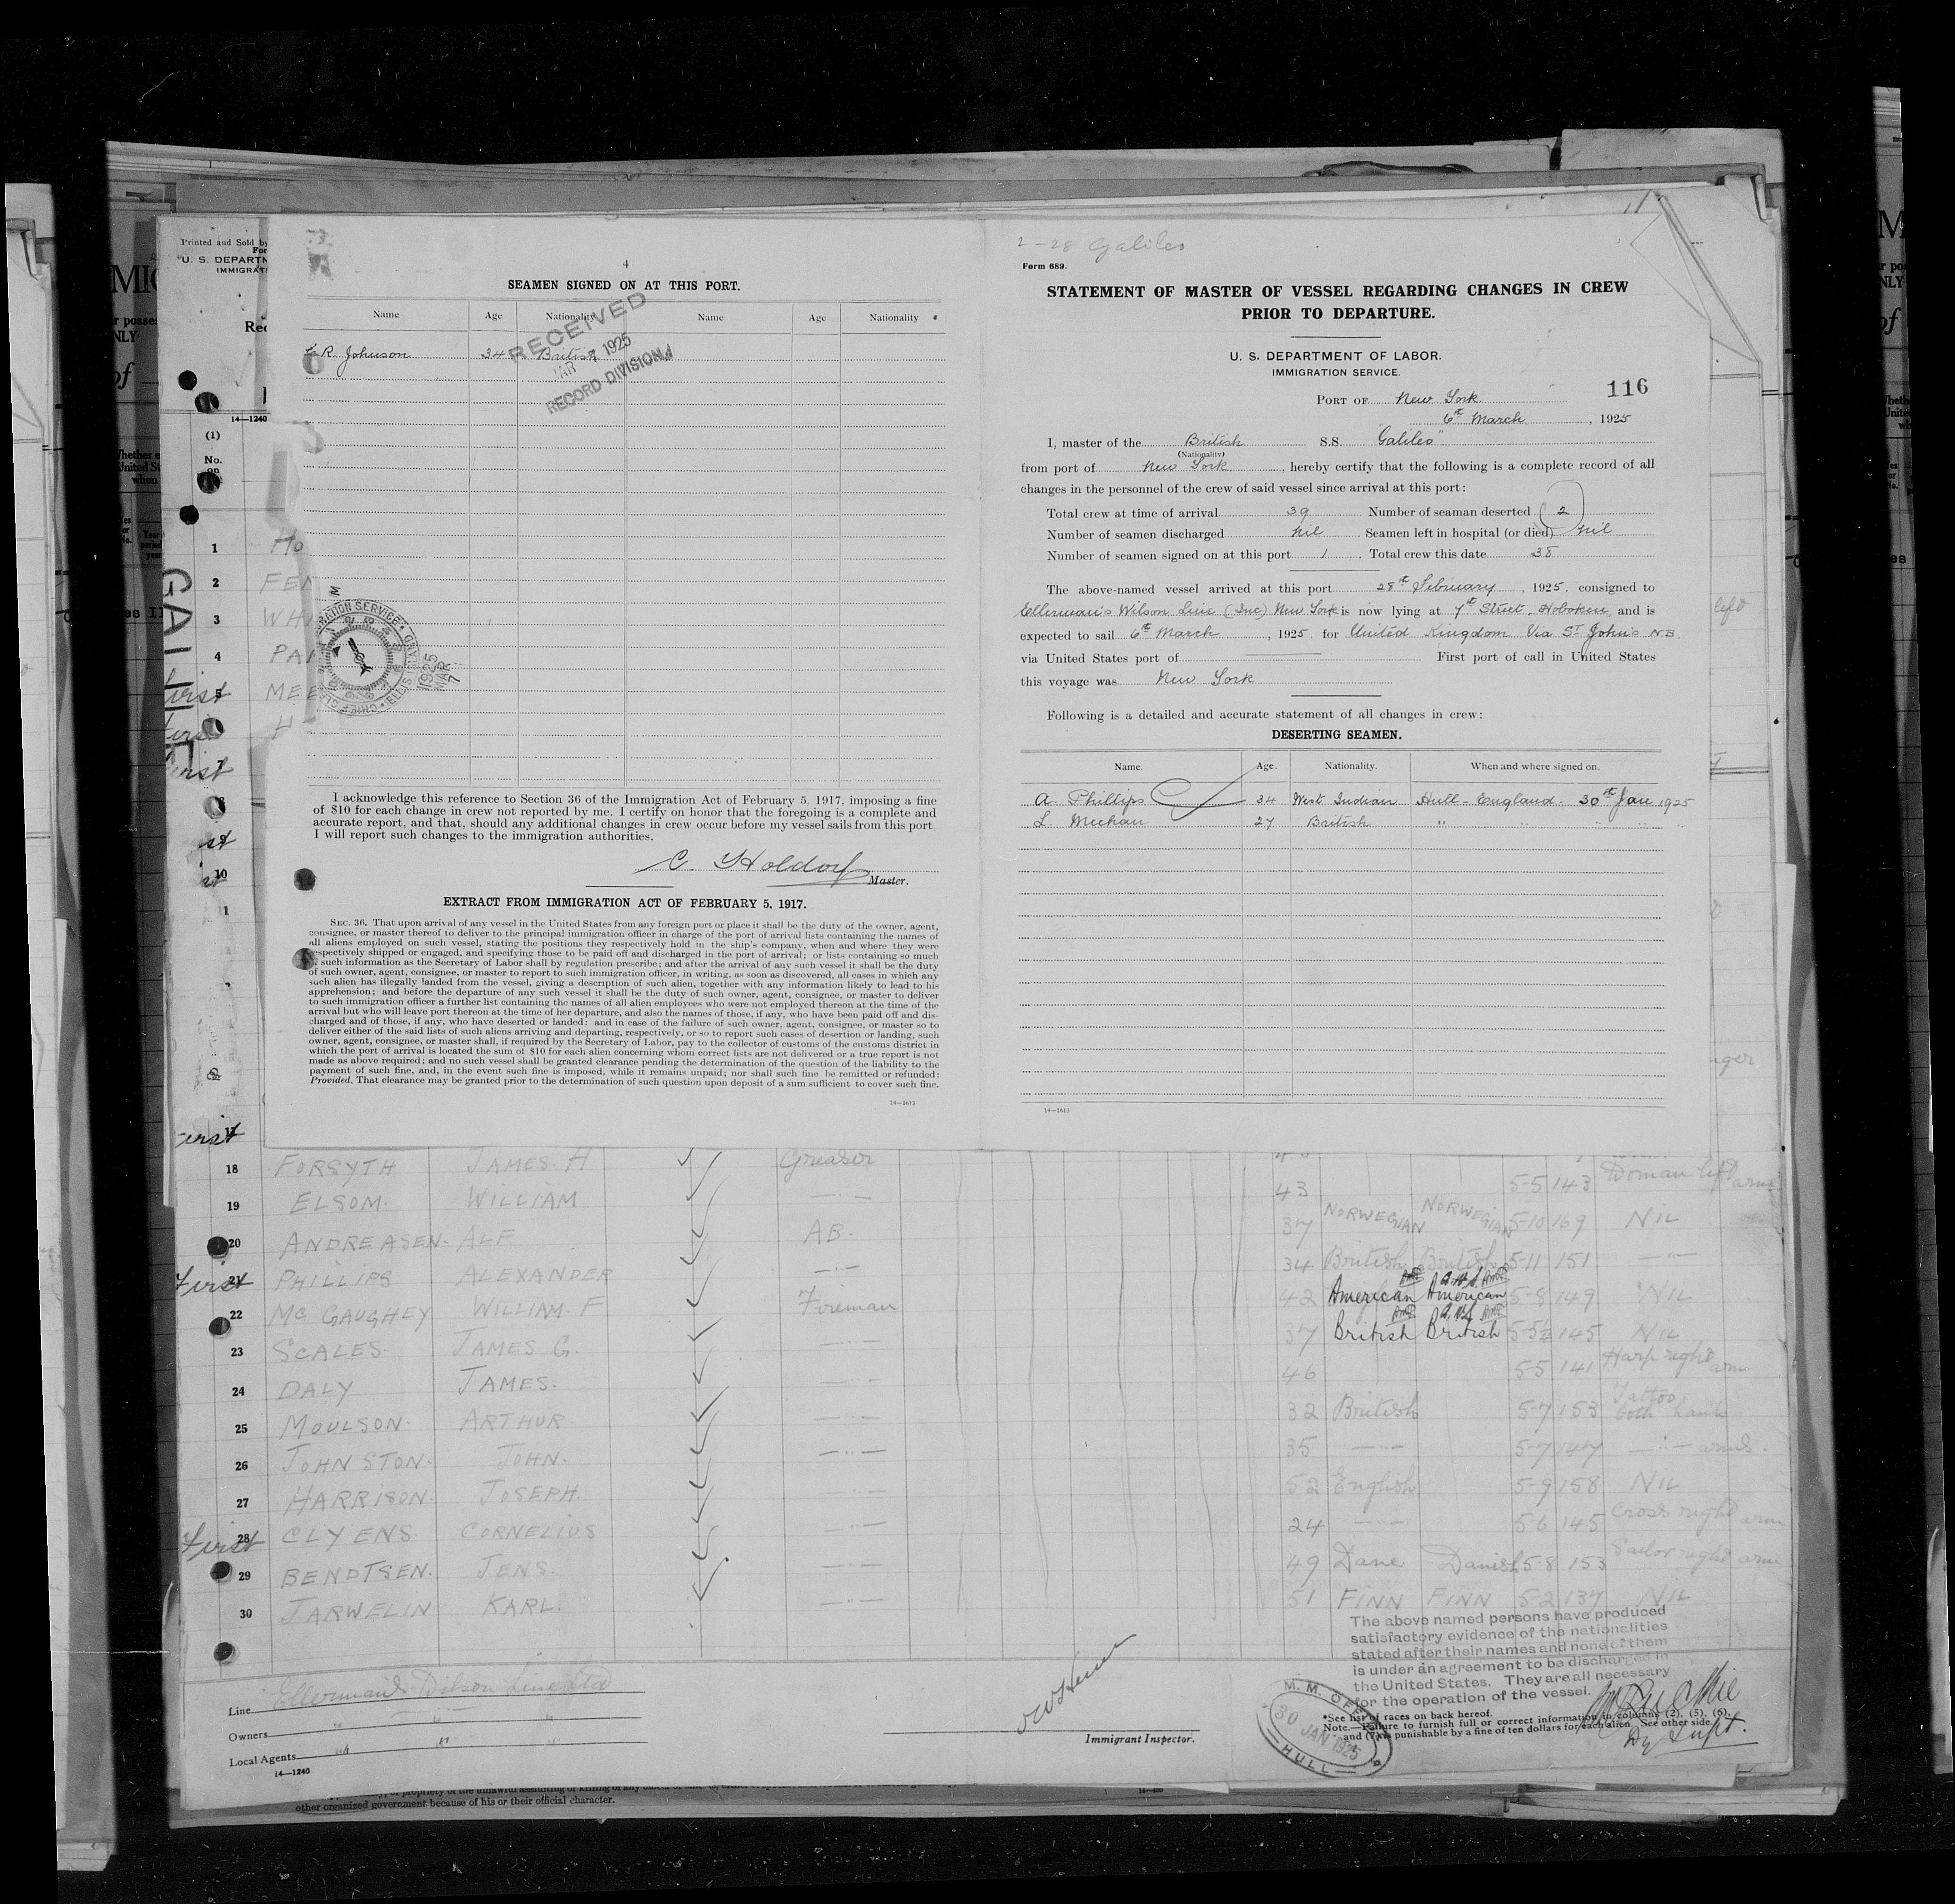 4
SEAMEN SIGNED ON AT THIS PORT.
Name Age Nationality Name Age Nationality
R. Johnson 34 British
RECEIVED
1925
RECORD DIVISION
I acknowledge this reference to Section 36 of the Immigration Act of February 5, 1917, imposing a fine
of $10 for each change in crew not reported by me. I certify on honor that the foregoing is a complete and
accurate report, and that, should any additional changes in crew occur before my vessel sails from this port
I will report such changes to the immigration authorities.
C. Holdorf
Master.
EXTRACT FROM IMMIGRATION ACT OF FEBRUARY 5, 1917.
SEC. 36. That upon arrival of any vessel in the United States from any foreign port or place it shall be the duty of the owner, agent,
consignee, or master thereof to deliver to the principal immigration officer in charge of the port of arrival lists containing the names of
all aliens employed on such vessel, stating the positions they respectively hold in the ship's company, when and where they were
respectively shipped or engaged, and specifying those to be paid off and discharged in the port of arrival; or lists containing so much
such information as the Secretary of Labor shall by regulation prescribe; and after the arrival of any such vessel it shall be the duty
of such owner, agent, consignee, or master to report to such immigration officer, in writing, as soon as discovered, all cases in which any
such alien has illegally landed from the vessel, giving a description of such alien, together with any information likely to lead to his
apprehension; and before the departure of any such vessel it shall be the duty of such owner, agent, consignee, or master to deliver
to such immigration officer a further list containing the names of all alien employees who were not employed thereon at the time of the
arrival but who will leave port thereon at the time of her departure, and also the names of those, if any, who have been paid off and dis-
charged and of those, if any, who have deserted or landed; and in case of the failure of such owner, agent, consignee, or master so to
deliver either of the said lists of such aliens arriving and departing, respectively, or so to report such cases of desertion or landing, such
owner, agent, consignee, or master shall, if required by the Secretary of Labor, pay to the collector of customs of the customs district in
which the port of arrival is located the sum of $10 for each alien concerning whom correct lists are not delivered or a true report is not
made as above required; and no such vessel shall be granted clearance pending the determination of the question of the liability to the
payment of such fine, and, in the event such fine is imposed, while it remains unpaid; nor shall such fine be remitted or refunded:
Provided, That clearance may be granted prior to the determination of such question upon deposit of a sum sufficient to cover such fine.
14—1613
2-28 Galileo
Form 689.
STATEMENT OF MASTER OF VESSEL REGARDING CHANGES IN CREW
PRIOR TO DEPARTURE.
U. S. DEPARTMENT OF LABOR.
IMMIGRATION SERVICE.
116
PORT OF New York
6th March, 1925
I, master of the British S.S. Galileo
(Nationality)
from port of New York, hereby certify that the following is a complete record of all
changes in the personnel of the crew of said vessel since arrival at this port:
Total crew at time of arrival 39 Number of seaman deserted 2
Number of seamen discharged Nil Seamen left in hospital (or died) Nil
Number of seamen signed on at this port 1. Total crew this date 38
The above-named vessel arrived at this port 28th February, 1925, consigned to
Ellerman's Wilson Line (Inc) New York is now lying at 7th Street, Hoboken, and is
expected to sail 6th March, 1925 for United Kingdom Via St John's N.B.
via United States port of First port of call in United States
this voyage was New York
Following is a detailed and accurate statement of all changes in crew:
DESERTING SEAMEN.
Name. Age. Nationality. When and where signed on.
A. Phillips 34 West Indian Hull - England. 30th Jan 1925
L. Meehan 27 British " " " " "
14—1613
Printed and Sold by
U. S. DEPARTM
IMMIGRATI
14—1240
(1)
No.
on
1 Ho
2 FE
3 WH
4 PA
5 MEE
10
18 FORSYTH JAMES H Greaser
19 ELSOM. WILLIAM —"— 43 5-5 143 Woman left arm
20 ANDREASEN. ALF AB. 37 NORWEGIAN NORWEGIAN 5-10 169 NIL
First 21 PHILLIPS ALEXANDER —"— 34 British British 5-11 151 —"—
22 Mc GAUGHEY WILLIAM. F Fireman 42 American American 5-8 149 NIL
23 SCALES JAMES G. —"— 37 British British 5-5½ 145 NIL
24 DALY JAMES. —"— 46 5-5 141 Harp right arm
25 MOULSON. ARTHUR —"— 32 British 5-7 153 Tattoo both hands
26 JOHNSTON. JOHN. —"— 35 —"— 5-7 147 —"— arms.
27 HARRISON. JOSEPH. —"— 52 English 5-9 158 NIL
First 28 CLYENS CORNELIUS —"— 24 —"— 5-6 145 Cross right arm
29 BENDTSEN. JENS. —"— 49 Dane Danish 5-8 153 Sailor right arm
30 JARWELIN KARL. —"— 51 FINN FINN 5-2 137 NIL
The above named persons have produced
satisfactory evidence of the nationalities
stated after their names and none of them
is under an agreement to be discharged in
the United States. They are all necessary
for the operation of the vessel.
Line Ellerman's Wilson Line Ltd
Owners " " "
Local Agents " " "
14—1240
Immigrant Inspector.
M. M. OFFICE
30 JAN 1925
HULL
*See list of races on back hereof.
Note.—Failure to furnish full or correct information in columns (2), (5), (6),
and (7) is punishable by a fine of ten dollars for each alien. See other side.
Dy Supt.
other organized government because of his or their official character.